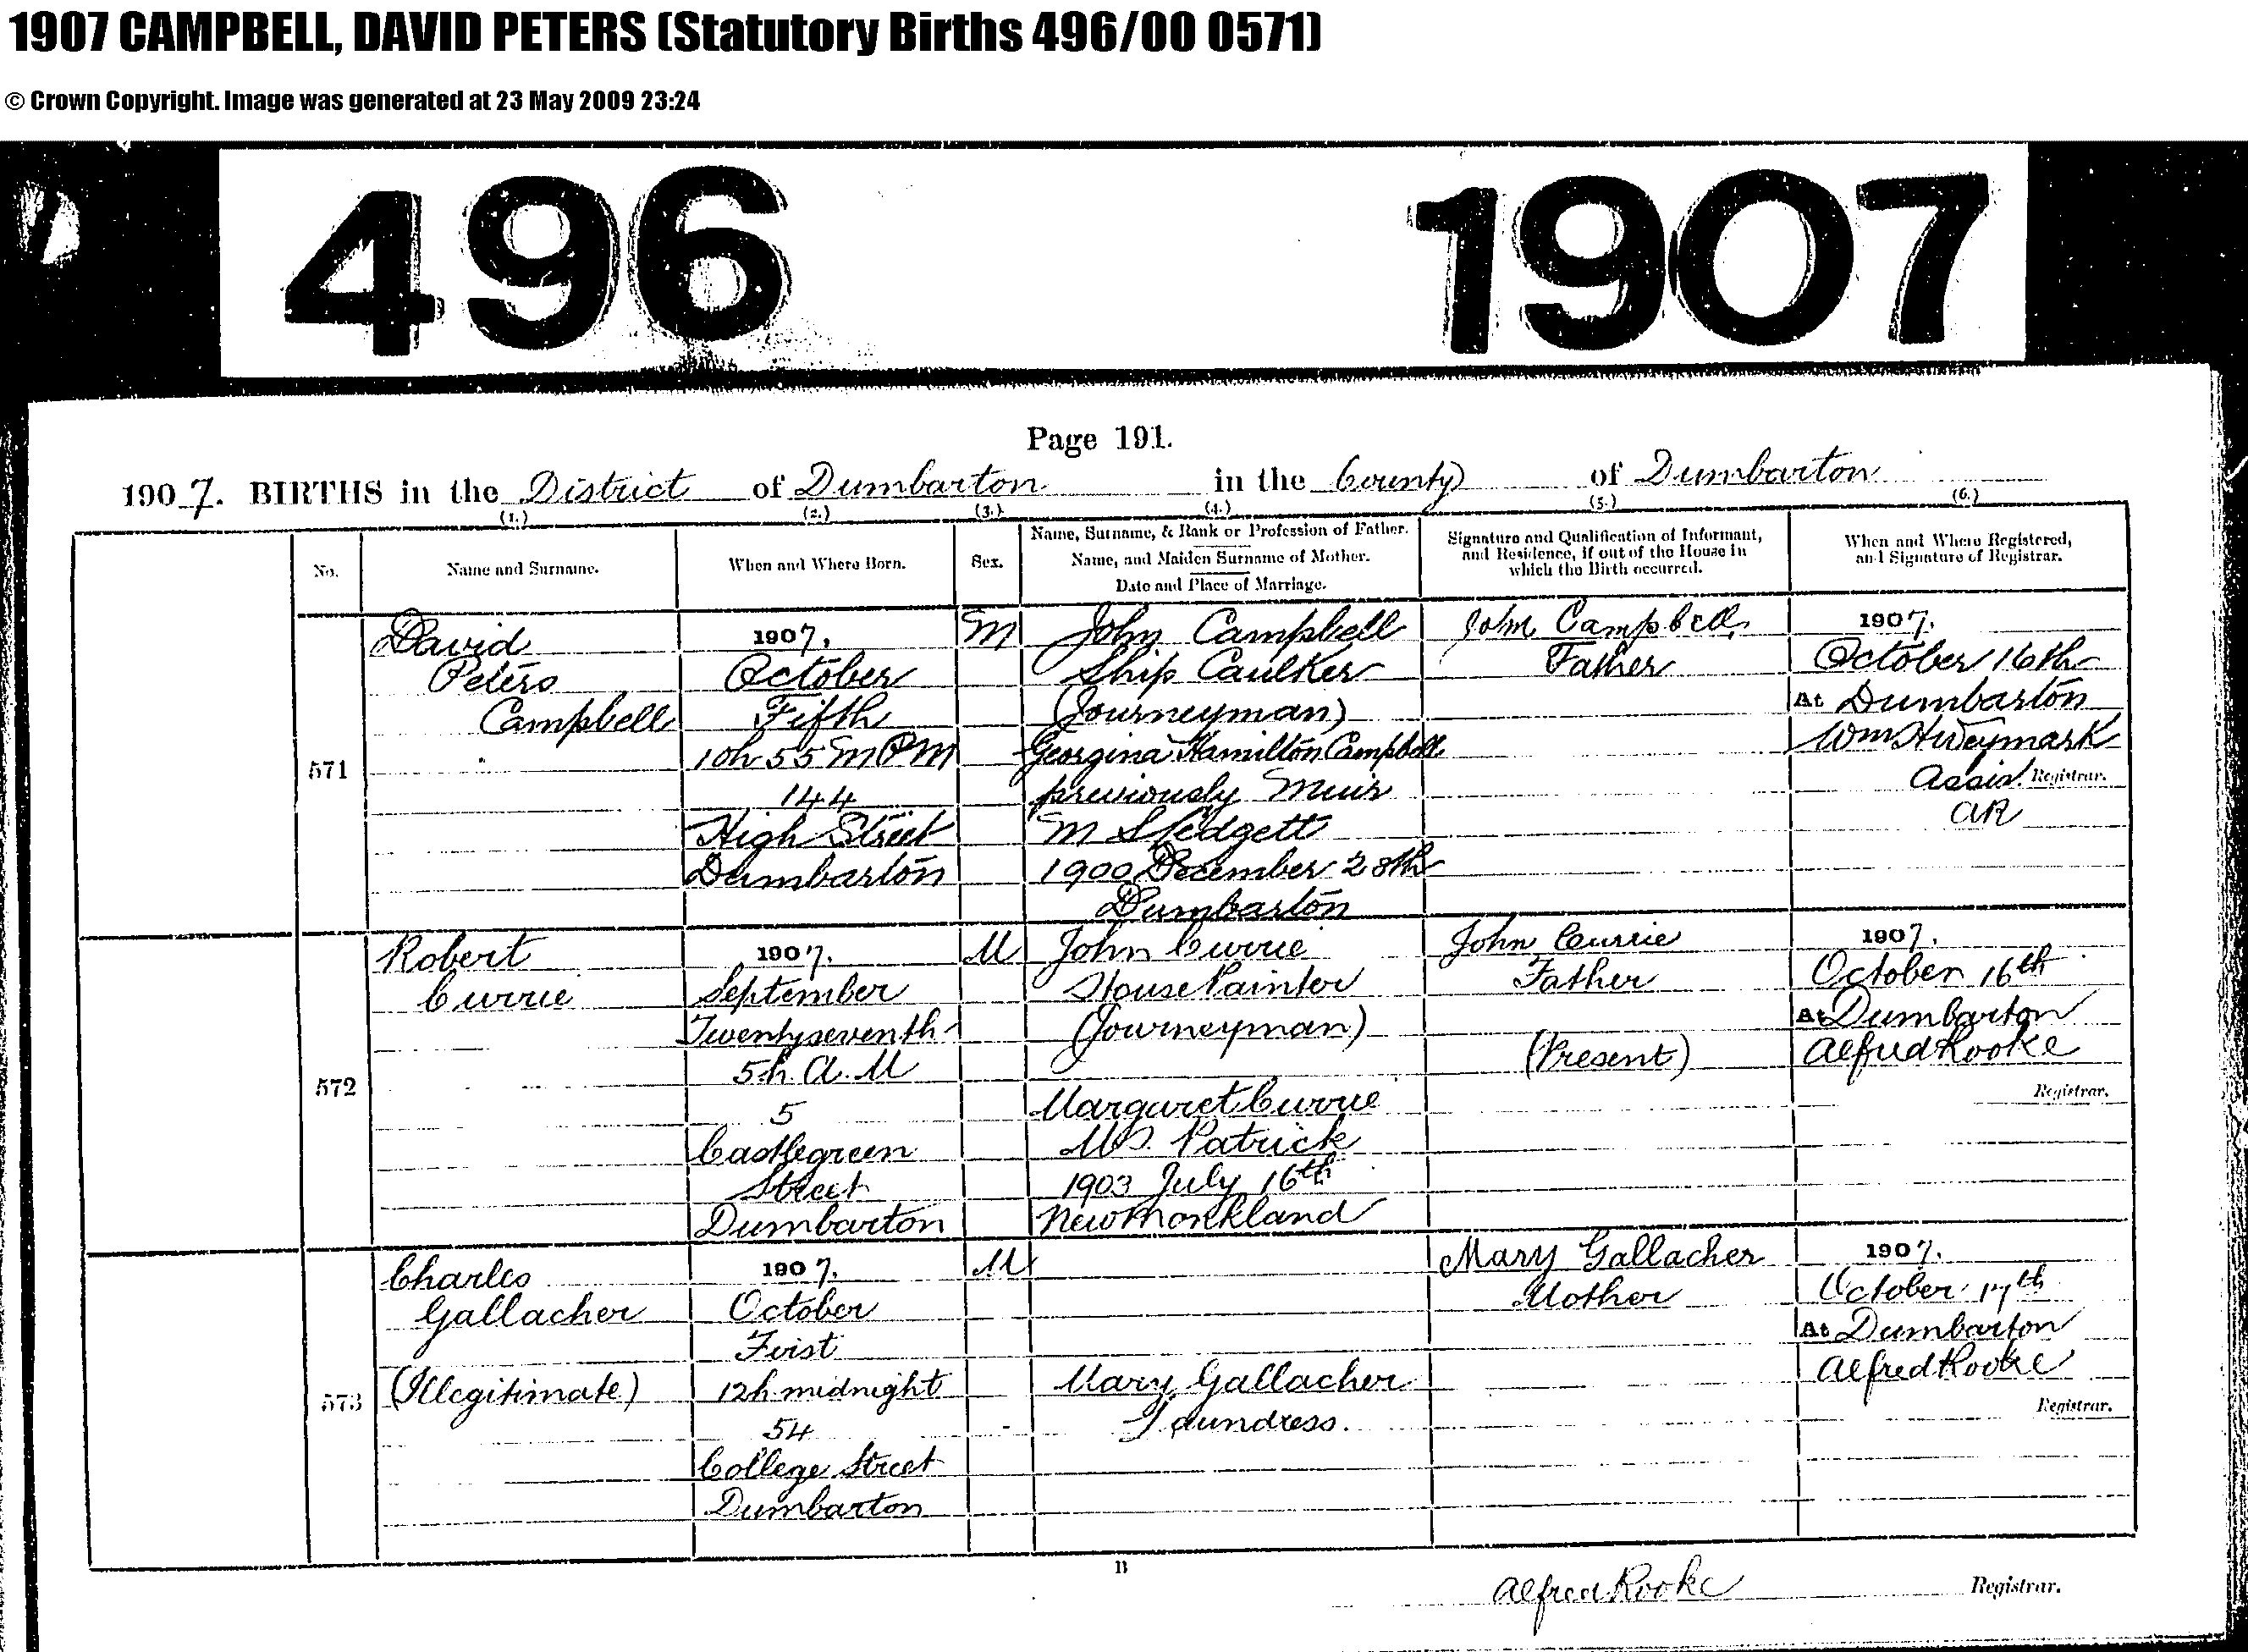 1907 CAMPBELL, DAVID PETERS (Statutory Births 496/00 0571)
© Crown Copyright. Image was generated at 23 May 2009 23:24
496 1907
Page 191.
1907. BIRTHS in the District of Dumbarton in the County of Dumbarton
(1.) (2.) (3.) (4.) (5.) (6.)
No.
Name and Surname.
When and Where Born.
Sex.
Name, Surname, & Rank or Profession of Father.
Name, and Maiden Surname of Mother.
Date and Place of Marriage.
Signature and Qualification of Informant,
and Residence, if out of the House in
which the Birth occurred.
When and Where Registered,
and Signature of Registrar.
571
David
Peters
Campbell
1907.
October
Fifth
10h 55 m PM
144
High Street
Dumbarton
M
John Campbell
Ship Caulker
(Journeyman)
Georgina Hamilton Campbell
previously Muir
M S Ledgett
1900 December 28th
Dumbarton
John Campbell
Father
1907.
October 16th
At Dumbarton
Wm H Weymark
Assist. Registrar.
AR
572
Robert
Currie
1907.
September
Twentyseventh
5h. A.M
5
Castlegreen
Street
Dumbarton
M
John Currie
House Painter
(Journeyman)
Margaret Currie
M.S. Patrick
1903 July 16th
New Monkland
John Currie
Father
(Present)
1907.
October 16th
At Dumbarton
Alfred Rooke
Registrar.
573
Charles
Gallacher
(Illegitimate)
1907.
October
First
12h midnight
54
College Street
Dumbarton
M
Mary Gallacher
Laundress.
Mary Gallacher
Mother
1907.
October 17th
At Dumbarton
Alfred Rooke
Registrar.
B
Alfred Rooke Registrar.